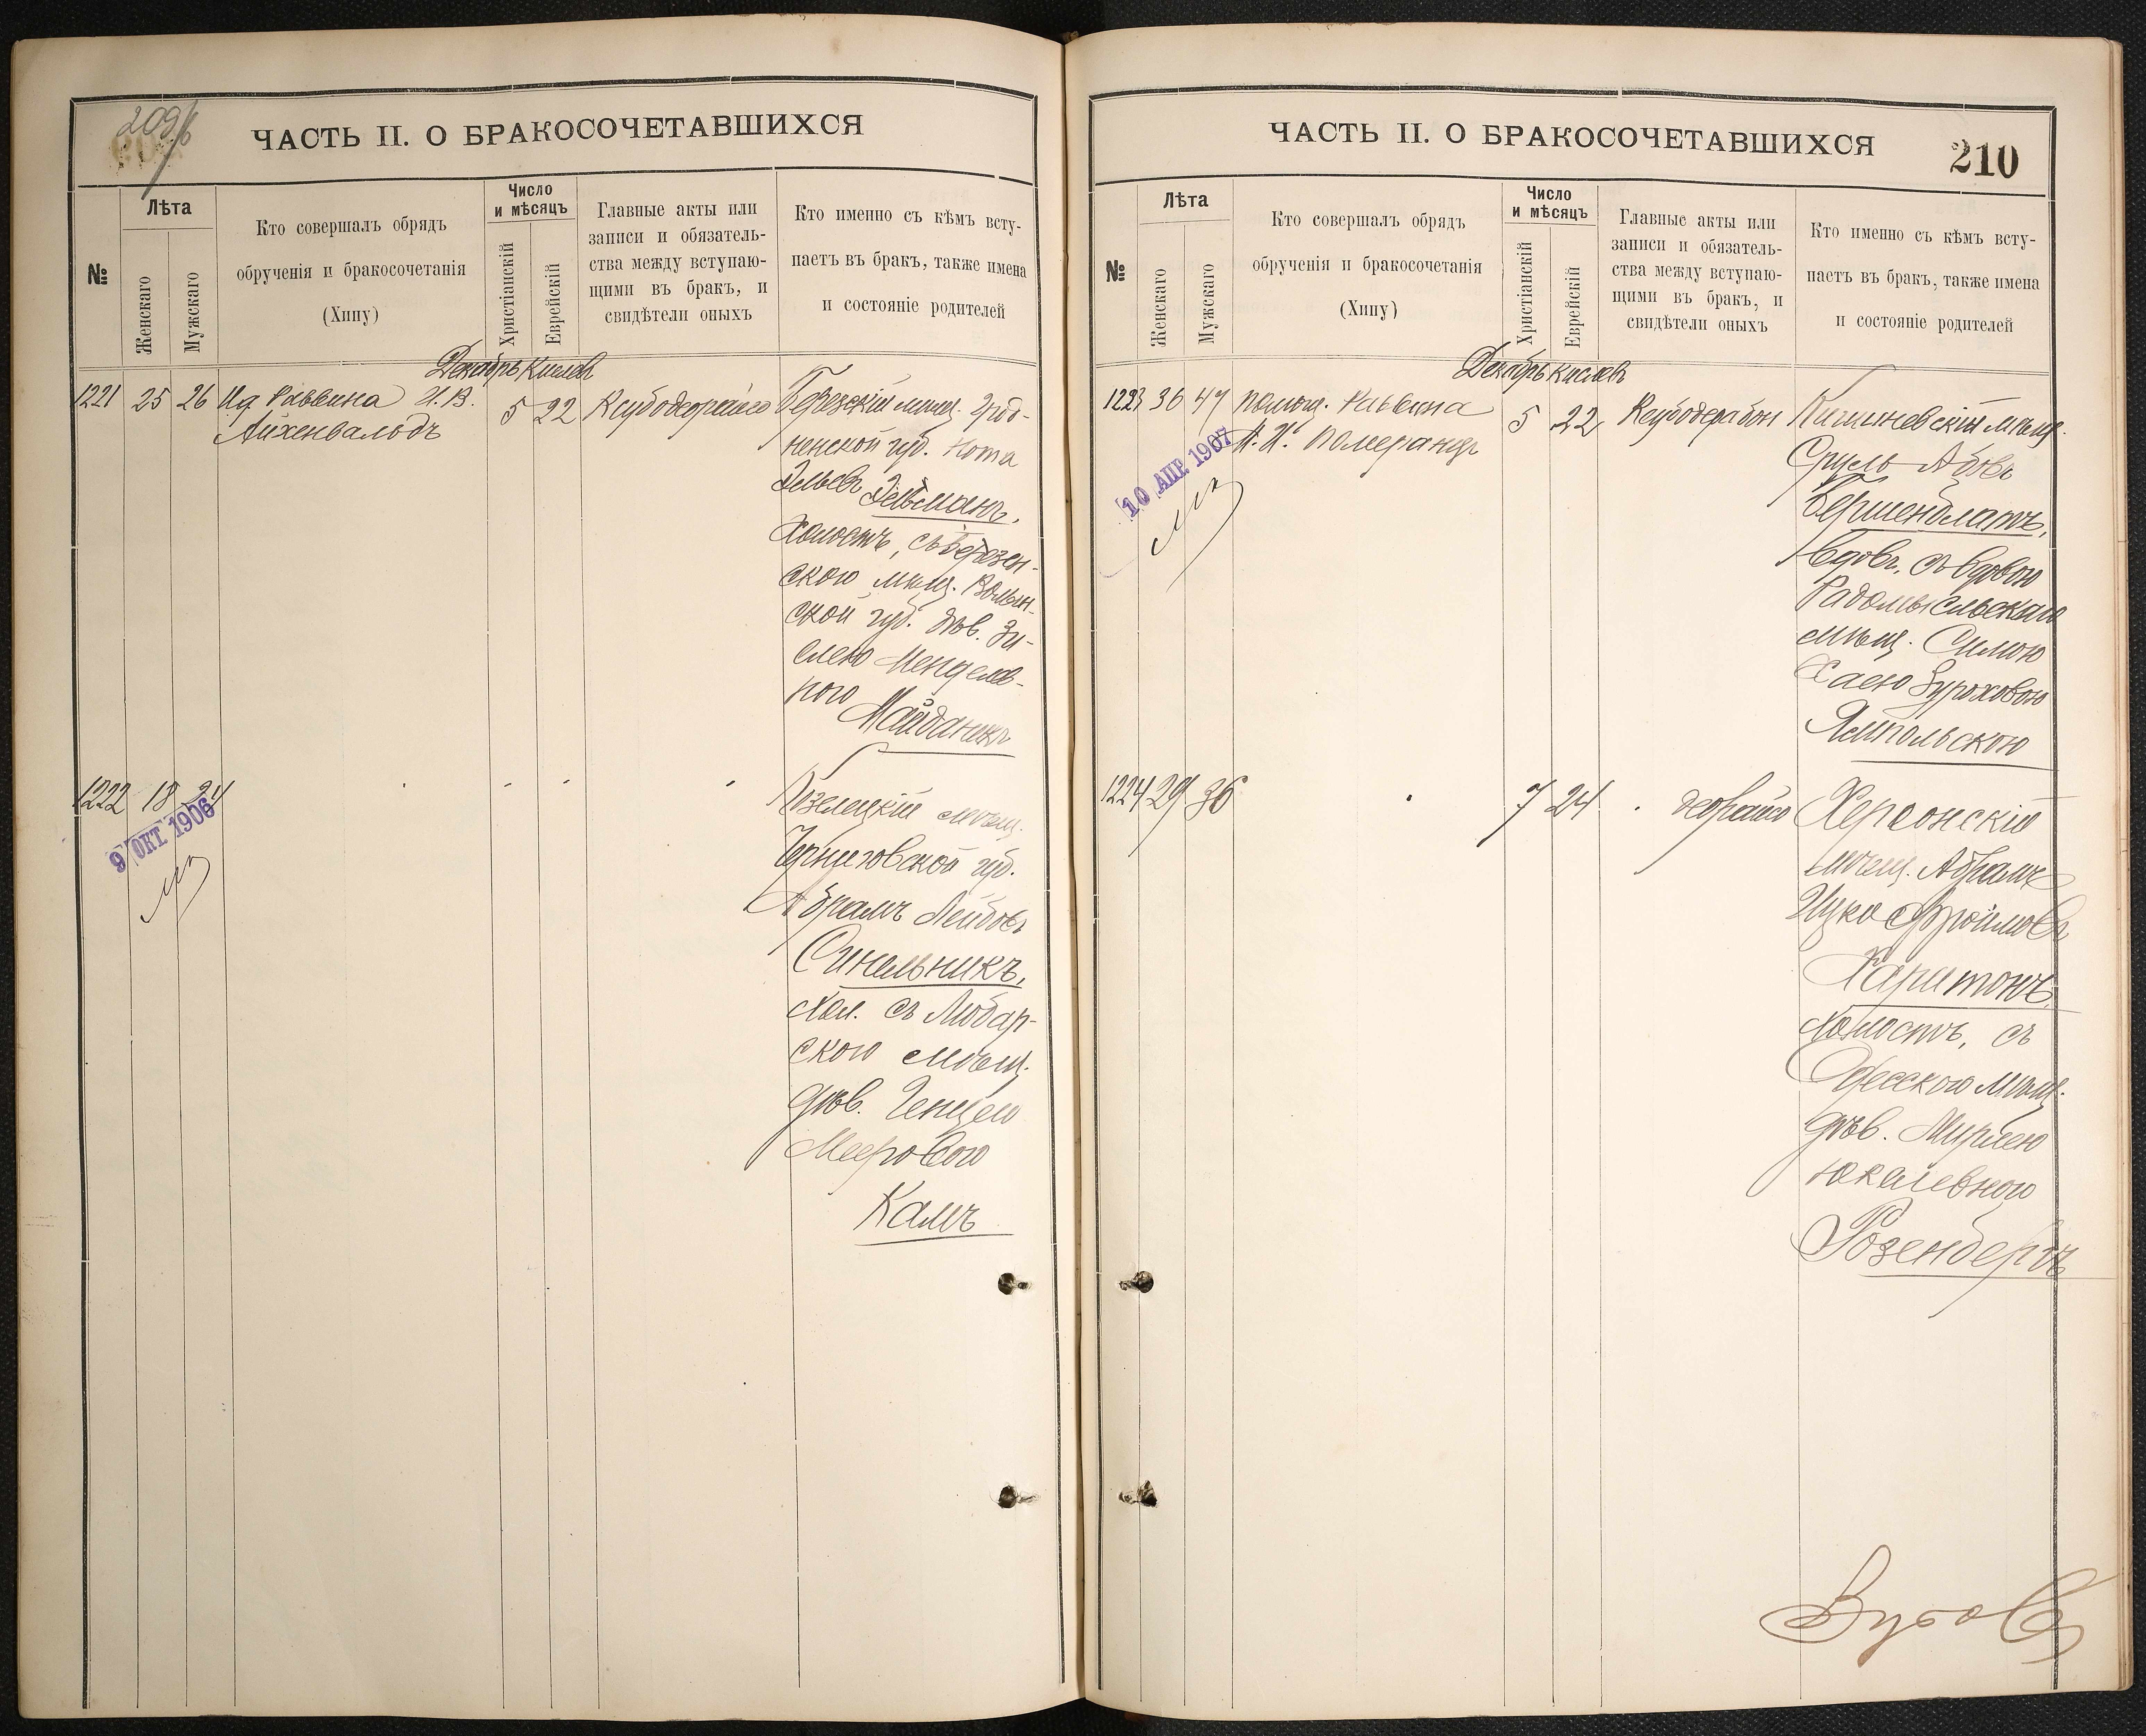 209/б
ЧАСТЬ II. О БРАКОСОЧЕТАВШИХСЯ
№
Лѣта
Женскаго
Мужскаго
Кто совершалъ обрядъ
обрученія и бракосочетанія
(Хипу)
Число
и мѣсяцъ
Христіанскій
Еврейскій
Главные акты или
записи и обязатель-
ства между вступаю-
щими въ бракъ, и
свидѣтели оныхъ
Кто именно съ кѣмъ всту-
паетъ въ бракъ, также имена
и состояніе родителей
Декабрь Кислевъ
1221 25 26 Ид. Раввина И. В.
Айхенвальдъ
5 22
Березскій мѣщ. Грод-
ненской губ. Нота
Эльевъ Эльманъ,
Холостъ, съ Березен-
скою мѣщ. Волын-
ской губ. дѣв. Зи-
слею Менделев-
ною
Майданикъ
1222 18 24
9 ОКТ 1906
Козелецкій мѣщ.
Черниговской губ.
Абрамъ Лейбовъ
Синельникъ,
хол. съ Любар-
скою мѣщ.
дѣв. Генцею
Мееровою
Камъ
ЧАСТЬ II. О БРАКОСОЧЕТАВШИХСЯ
210
№
Лѣта
Женскаго
Мужскаго
Кто совершалъ обрядъ
обрученія и бракосочетанія
(Хипу)
Число
и мѣсяцъ
Христіанскій
Еврейскій
Главные акты или
записи и обязатель-
ства между вступаю-
щими въ бракъ, и
свидѣтели оныхъ
Кто именно съ кѣмъ всту-
паетъ въ бракъ, также имена
и состояніе родителей
Декабрь Кислевъ
1223 36 47 помощ. Раввина
Померанцъ
5 22
10 АПР. 1907
Кишиневскій мѣщ.
Сруль Абовъ
Бершенблатъ,
вдовъ, съ вдовою
Радомысльскаго
мѣщ. Симою
Хаею Зуроховою
Ямпольскою
1224 29 36
7 24
Херсонскій
мѣщ. Абрамъ
Ицко Фроимовъ
Харитонъ,
холостъ, съ
Одесскою мѣщ.
дѣв. Мурлею
Юкелевною
Розенбергъ